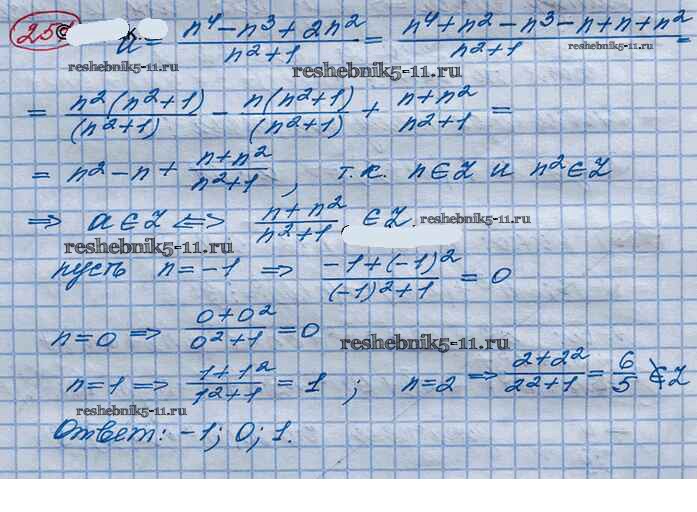 25
a = (n⁴ - n³ + 2n²)/(n² + 1) = (n⁴ + n² - n³ - n + n + n²)/(n² + 1) =
reshebnik5-11.ru reshebnik5-11.ru reshebnik5-11.ru
= n²(n² + 1)/(n² + 1) - n(n² + 1)/(n² + 1) + (n + n²)/(n² + 1) =
= n² - n + (n + n²)/(n² + 1), т.к. n ∈ Z и n² ∈ Z
⇒ a ∈ Z ⟺ (n + n²)/(n² + 1) ∈ Z reshebnik5-11.ru
reshebnik5-11.ru
пусть n = -1 ⇒ (-1 + (-1)²)/((-1)² + 1) = 0
n = 0 ⇒ (0 + 0²)/(0² + 1) = 0 reshebnik5-11.ru
n = 1 ⇒ (1 + 1²)/(1² + 1) = 1; n = 2 ⇒ (2 + 2²)/(2² + 1) = 6/5 ∉ Z
reshebnik5-11.ru
Ответ: -1; 0; 1.